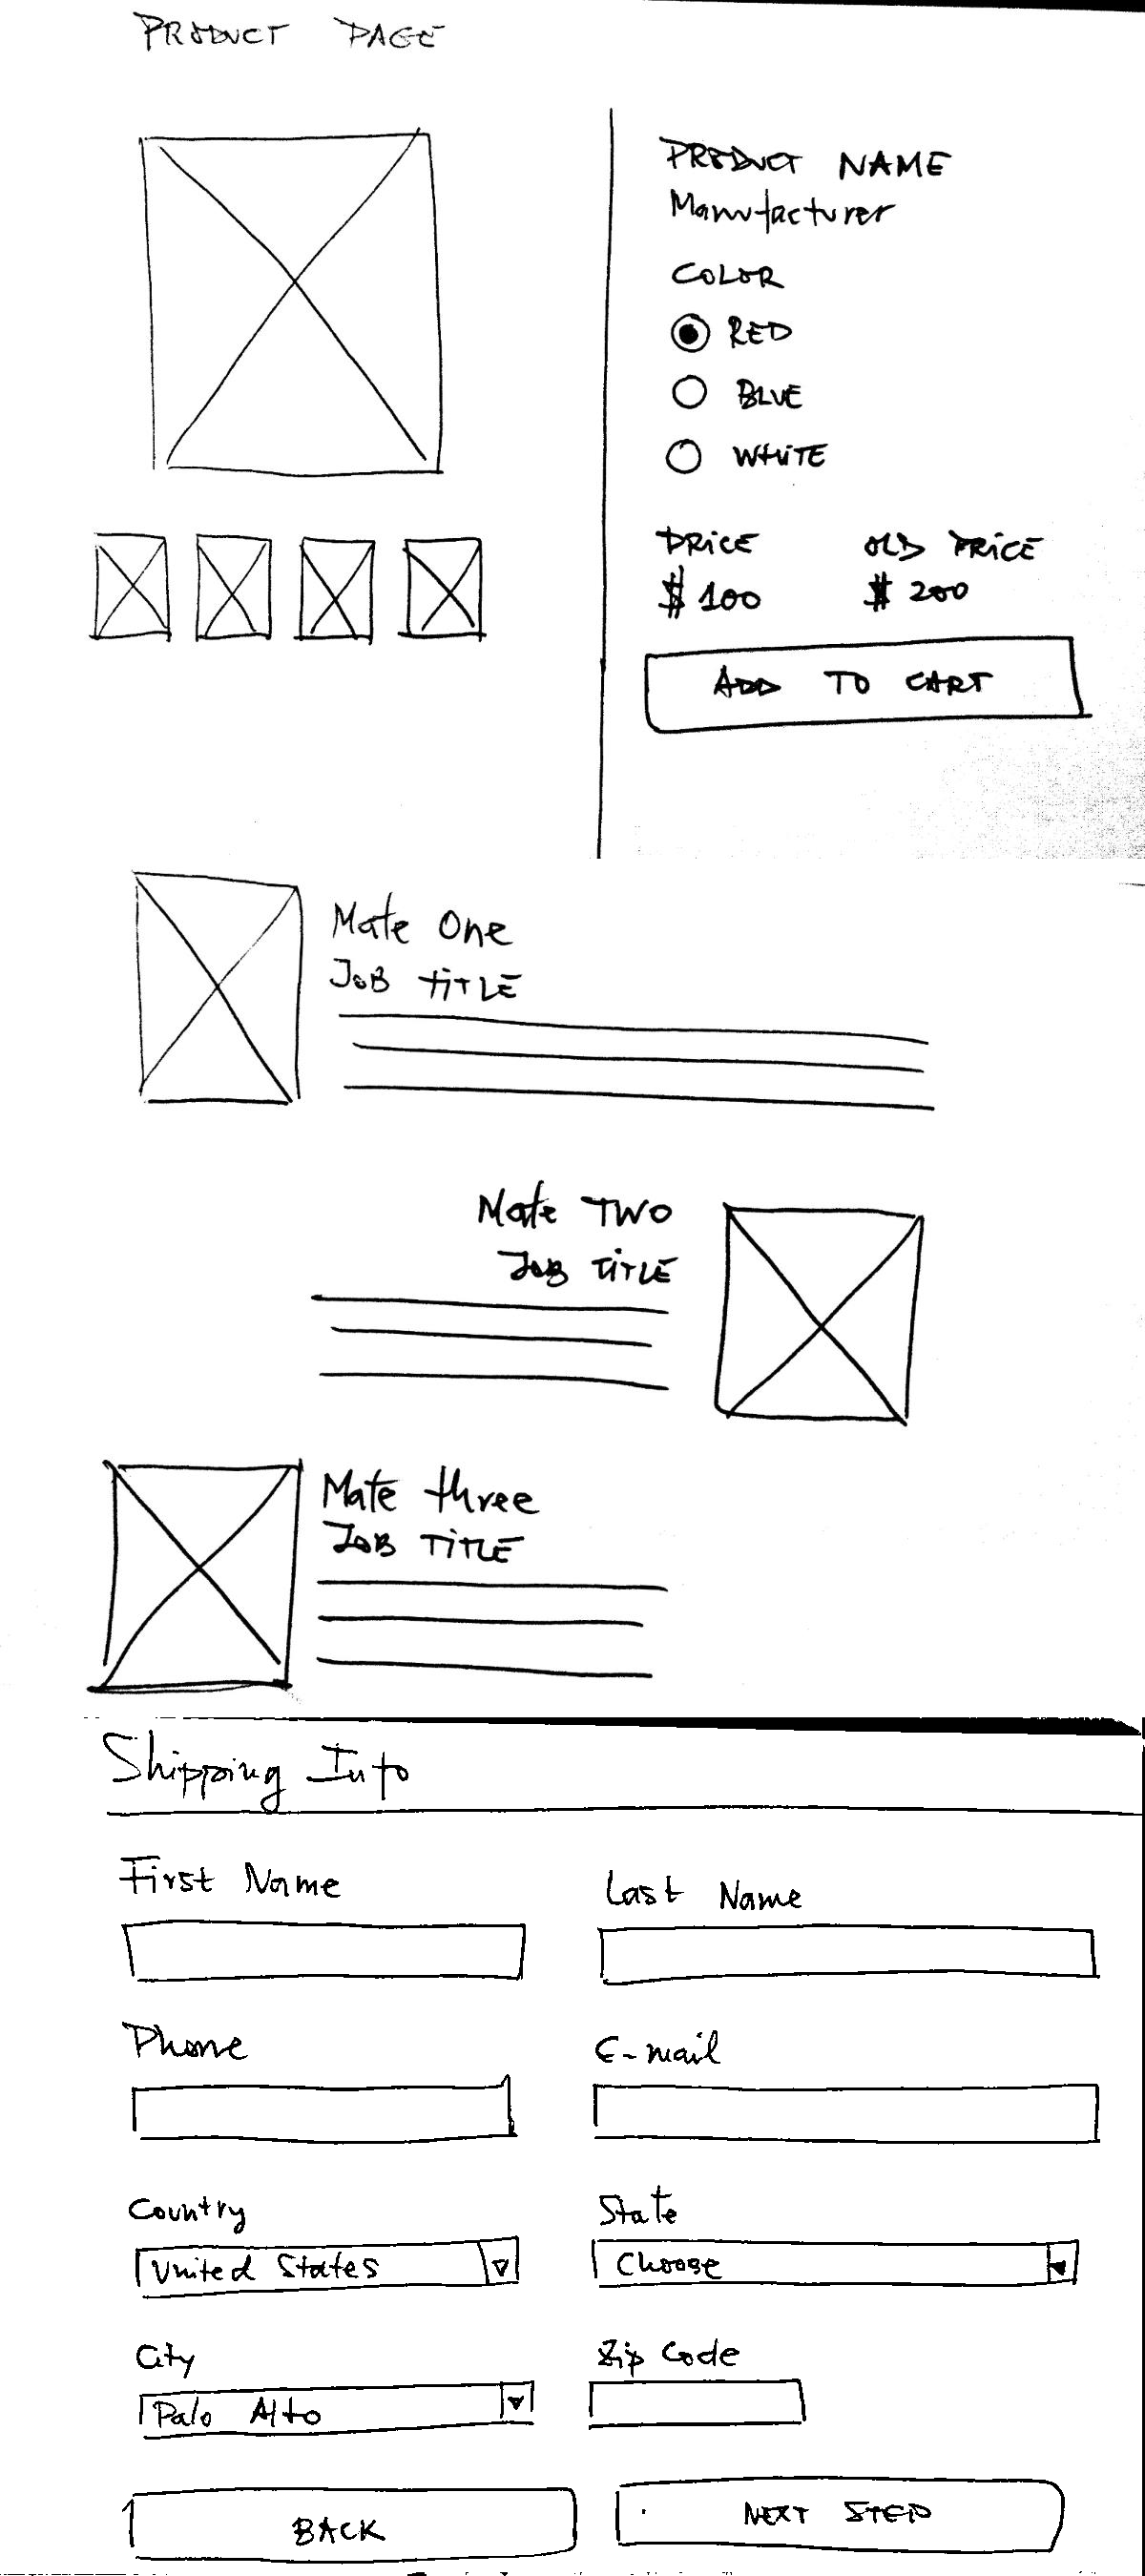 PRODUCT PAGE
PRODUCT NAME
Manufacturer
COLOR
RED
BLUE
WHITE
PRICE OLD PRICE
$100 $200
ADD TO CART
Mate One
JOB TITLE
Mate TWO
JOB TITLE
Mate three
JOB TITLE
Shipping Info
First Name Last Name
Phone E-mail
Country State
United States Choose
City Zip Code
Palo Alto
BACK NEXT STEP